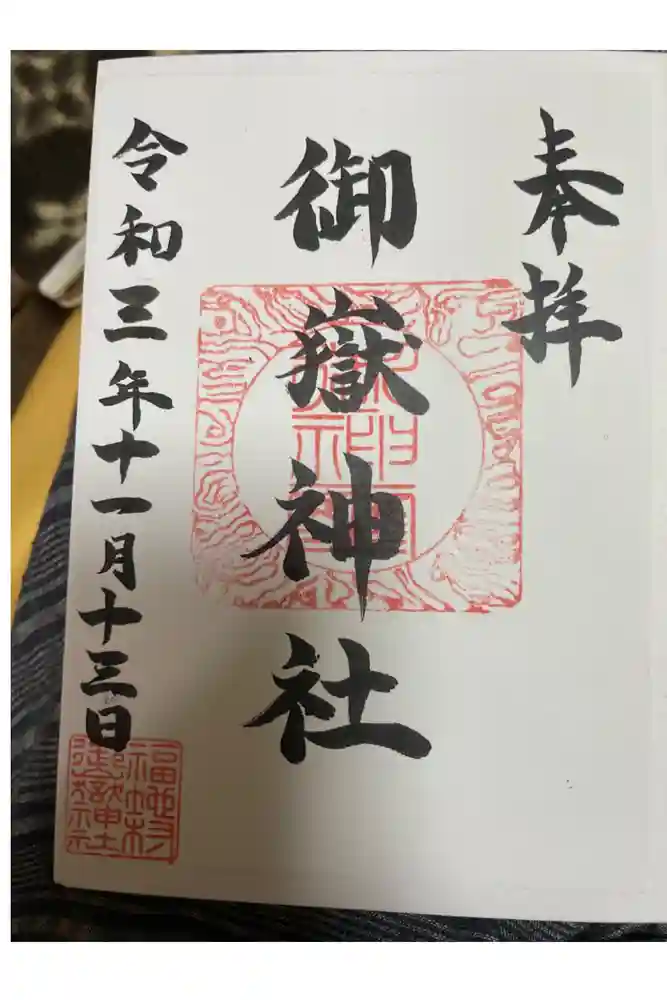 奉拝
御嶽神社
令和三年十一月十三日